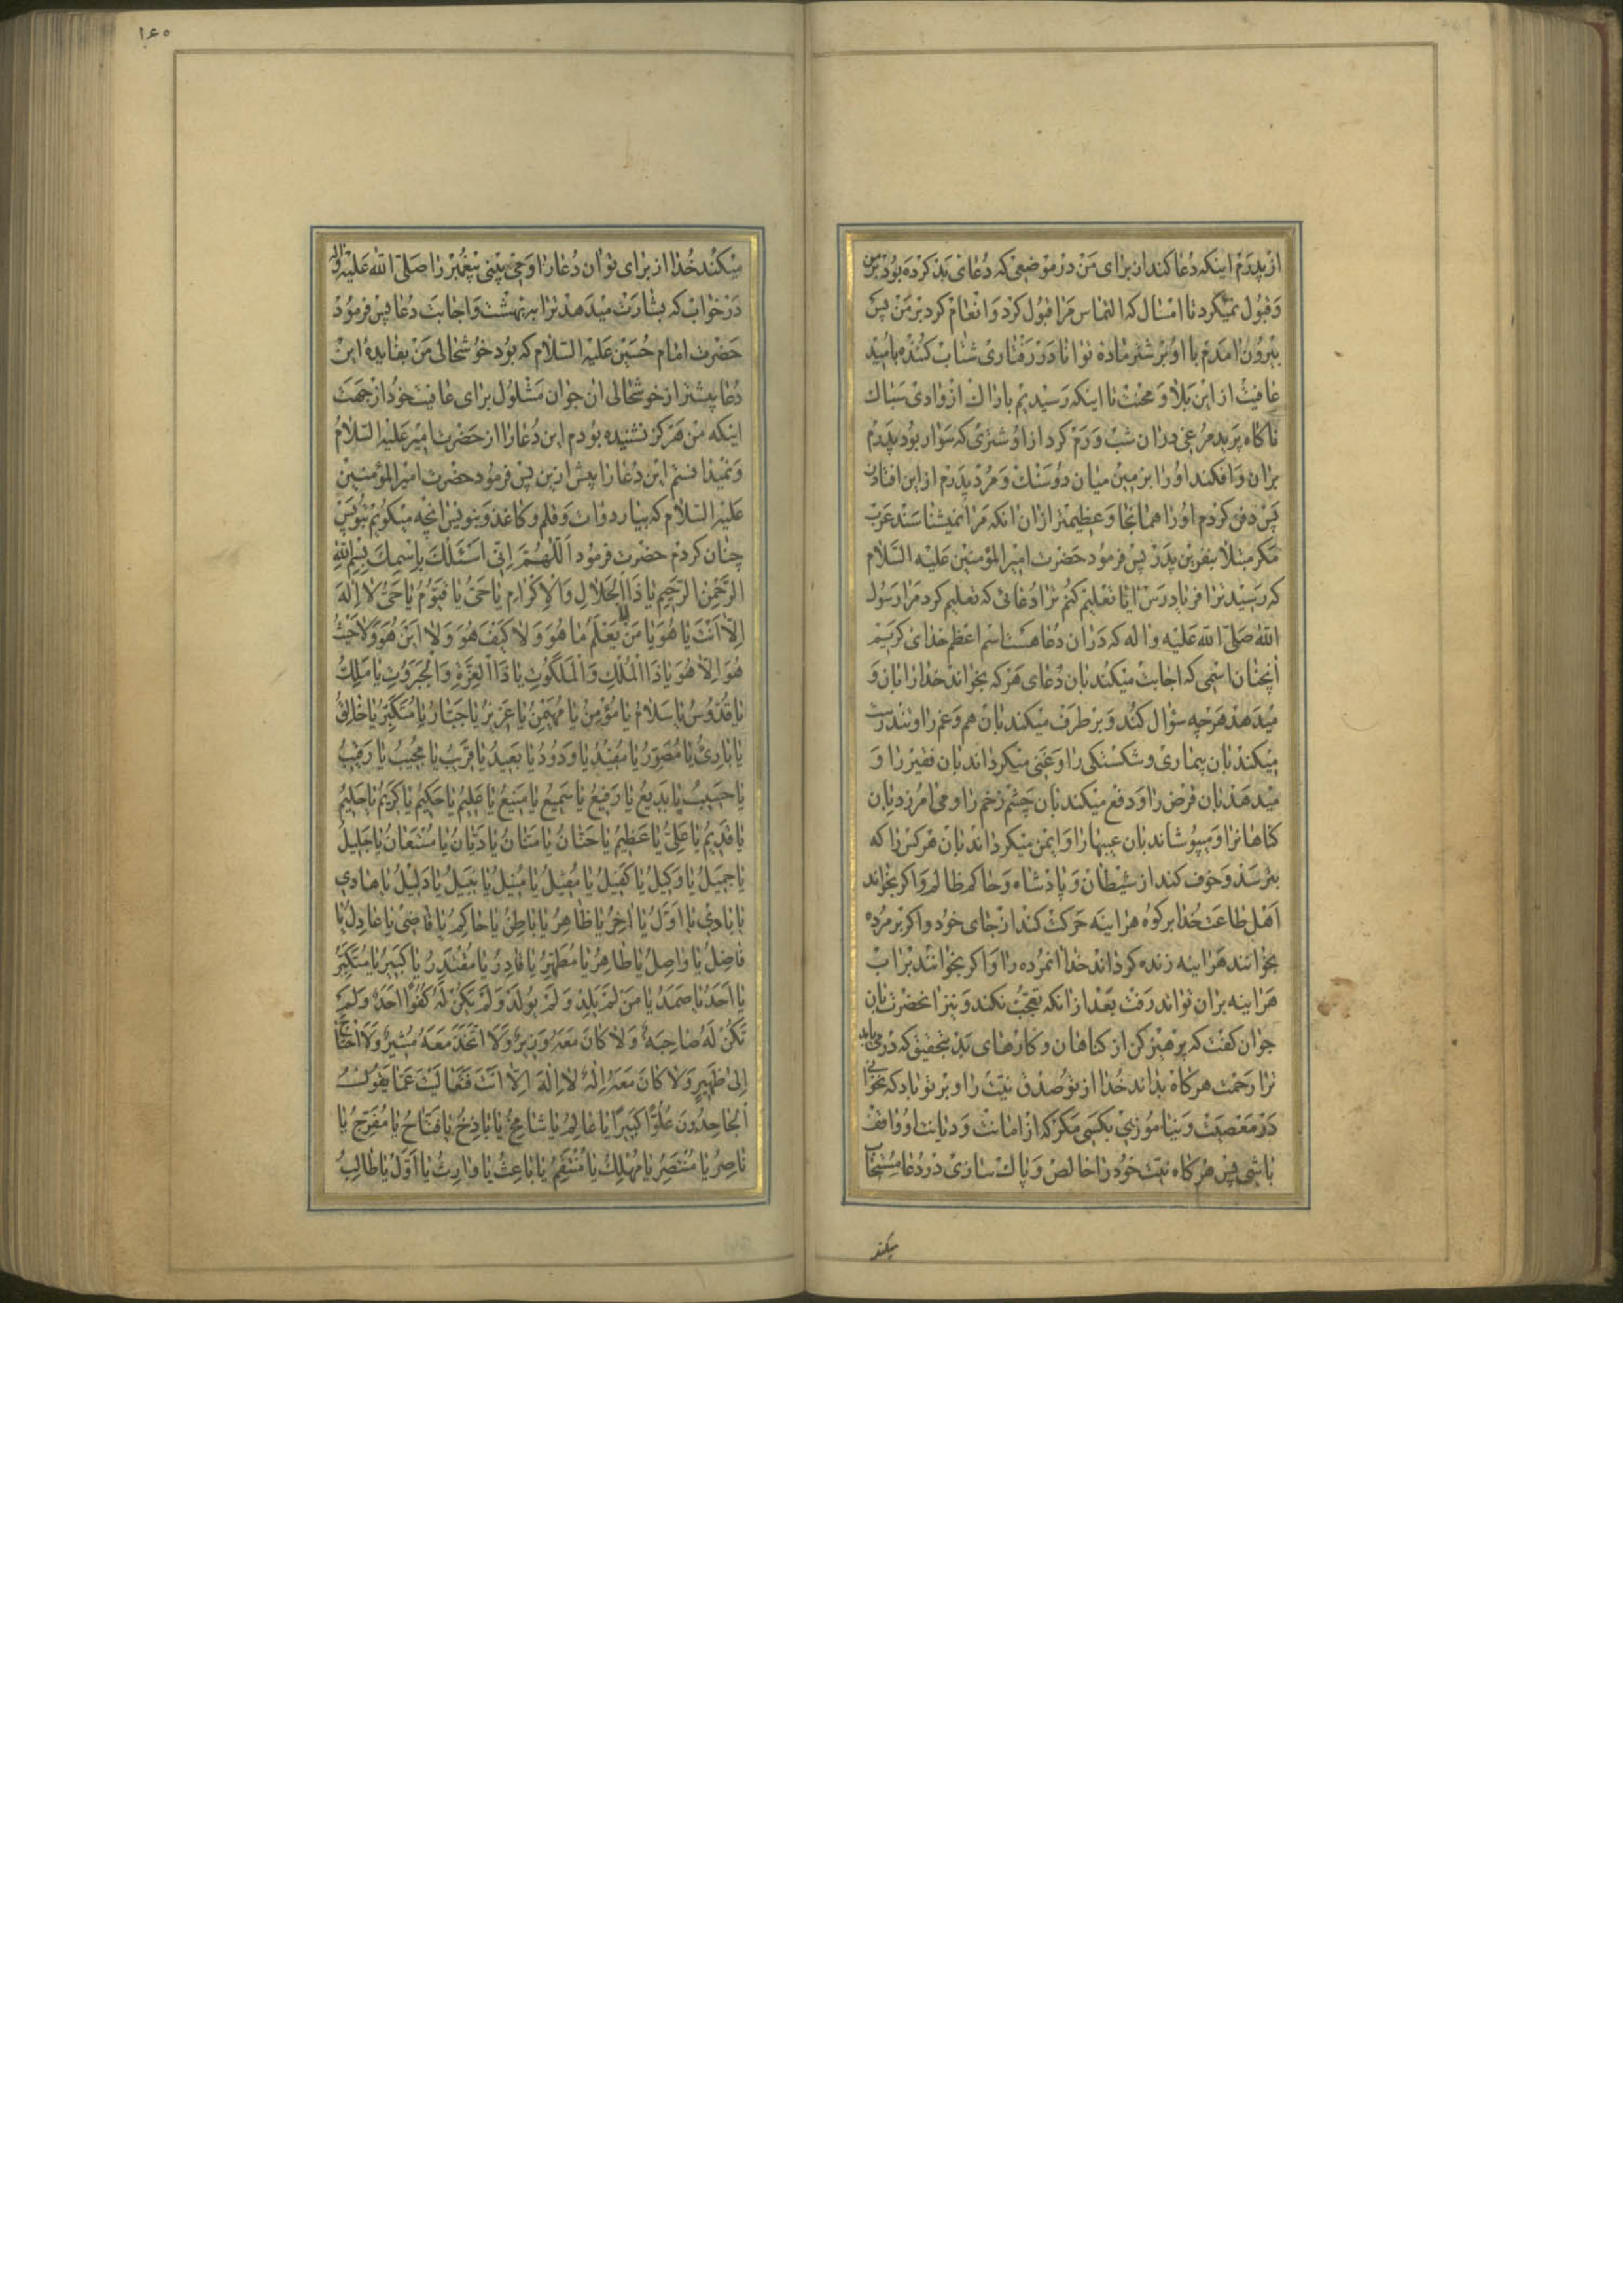 از پدرم اینکه دعا کند ان برای من در موضعی که دعای بد کرده بود بر من
و قبول نمیکرد تا امسال که التماس مرا قبول کرد و انعام کرد بر من پس
بیرون امدم با او بر شتر ماده توانا در رفتاری شتاب کننده بامید
عافیت از این بلا و محنت تا اینکه رسیدیم باراک از وادی سباک
ناکاه پرید مرغی در ان شب و رم کرد از او شتری که سوار بود پدرم
بران و افکند او را بزمین میان دو سنک و مرد پدرم از این افتادن
پس دفن کردم او را همانجا و عظیمتر ازان انکه مرا نمیشناسند عرب
مکر مبتلا بنفرین پدر پس فرمود حضرت امیر المؤمنین علیه السلام
که رسید ترا فریادرس ایا تعلیم کنم ترا دعائی که تعلیم کرد مرا رسول
الله صلی الله علیه واله که دران دعا هست اسم اعظم خدای کریم
انچنان اسمی که اجابت میکند بان دعای هر که بخواند خدا را بان و
میدهد هر چه سؤال کند و بر طرف میکند بان هم و غم را و تندرست
میکند بان بیماری و شکستکی را و غنی میکرداند بان فقیر را و
میدهد بان قرض را و دفع میکند بان چشم زخم را و می امرزد بان
کناهانرا و میپوشاند بان عیبها را و ایمن میکرداند بان هر کس را که
بترسد و خوف کند از شیطان و پادشاه و حاکم ظالم و اکر بخواند
اهل طاعت خدا بر کوه هراینه حرکت کند از جای خود و اکر بر مرده
بخوانند هراینه زنده کرداند خدا انمرده را و اکر بخوانند بر اب
هراینه بران تواند رفت بعد از انکه تعجب نکند و نیز انحضرت بان
جوان کفت که پرهیز کن از کناهان و کارهای بد بتحقیق که در می یابد
ترا رحمت هر کاه بداند خدا از تو صدق نیت را و بر تو باد که نخوانی
در معصیت و نیاموزی بکسی مکر که از امانت و دیانت او واقف
باشی پس هر کاه نیت خود را خالص و پاک سازی در دعا مستجاب
میکند
۱۶۰
میکند خدا از برای تو ان دعا را و می بینی پیغمبر را صلی الله علیه واله
در خواب که بشارت میدهد ترا به بهشت و اجابت دعا پس فرمود
حضرت امام حسین علیه السلام که بود خوشحالی من بفایده این
دعا بیشتر از خوشحالی ان جوان مشلول برای عافیت خود از جهت
اینکه من هرکز نشنیده بودم این دعا را از حضرت امیر علیه السلام
و نمیدانستم این دعا را پیش ازین پس فرمود حضرت امیر المؤمنین
علیه السلام که بیار دوات و قلم و کاغذ و بنویس انچه میکویم بنویس
چنان کردم حضرت فرمود اَللّهُمَّ اِنّی اَسْئَلُکَ بِاِسْمِکَ بِسْمِ اللّهِ
الرَّحْمنِ الرَّحیمِ یا ذَا الْجَلالِ وَالْاِکْرامِ یا حَیُّ یا قَیّوُمُ یا حَیُّ لا اِلهَ
اِلاّ اَنْتَ یا هُوَ یا مَنْ لا یَعْلَمُ ما هُوَ وَلا کَیْفَ هُوَ وَلا اَیْنَ هُوَ وَلا حَیْثُ
هُوَ اِلاّ هُوَ یا ذَا الْمُلْکِ وَالْمَلَکُوتِ یا ذَا الْعِزَّةِ وَالْجَبَرُوتِ یا مَلِکُ
یا قُدّوُسُ یا سَلامُ یا مُؤْمِنُ یا مُهَیْمِنُ یا عَزیزُ یا جَبّارُ یا مُتَکَبِّرُ یا خالِقُ
یا بارِئُ یا مُصَوِّرُ یا مُفیدُ یا وَدُودُ یا بَعیدُ یا قَریبُ یا مُجیبُ یا رَقیبُ
یا حَسیبُ یا بَدیعُ یا رَفیعُ یا سَمیعُ یا مَنیعُ یا عَلیمُ یا حَکیمُ یا کَریمُ یا حَلیمُ
یا قَدیمُ یا عَلِیُّ یا عَظیمُ یا حَنّانُ یا مَنّانُ یا دَیّانُ یا مُسْتَعانُ یا جَلیلُ
یا جَمیلُ یا وَکیلُ یا کَفیلُ یا مُقیلُ یا مُنیلُ یا نَبیلُ یا دَلیلُ یا هادی
یا بادی یا اَوَّلُ یا اخِرُ یا ظاهِرُ یا باطِنُ یا حاکِمُ یا قاضی یا عادِلُ یا
فاضِلُ یا واصِلُ یا طاهِرُ یا مُطَهِّرُ یا قادِرُ یا مُقْتَدِرُ یا کَبیرُ یا مُتَکَبِّرُ
یا اَحَدُ یا صَمَدُ یا مَنْ لَمْ یَلِدْ وَلَمْ یوُلَدْ وَلَمْ یَکُنْ لَهُ کُفُوًا اَحَدٌ وَلَمْ
تَکُنْ لَهُ صاحِبَةٌ وَلا کانَ مَعَهُ وَزیرٌ وَلاَ اتَّخَذَ مَعَهُ مُشیرًا وَلاَ احْتاجَ
اِلی ظَهیرٍ وَلا کانَ مَعَهُ اِلهٌ لا اِلهَ اِلاّ اَنْتَ فَتَعالَیْتَ عَمّا یَقُولُ
الْجاحِدُونَ عُلُوًّا کَبیرًا یا عالِمُ یا شامِخُ یا باذِخُ یا فَتّاحُ یا مُفَرِّجُ یا
ناصِرُ یا مُنْتَصِرُ یا مُهْلِکُ یا مُنْتَقِمُ یا باعِثُ یا وارِثُ یا اَوَّلُ یا طالِبُ